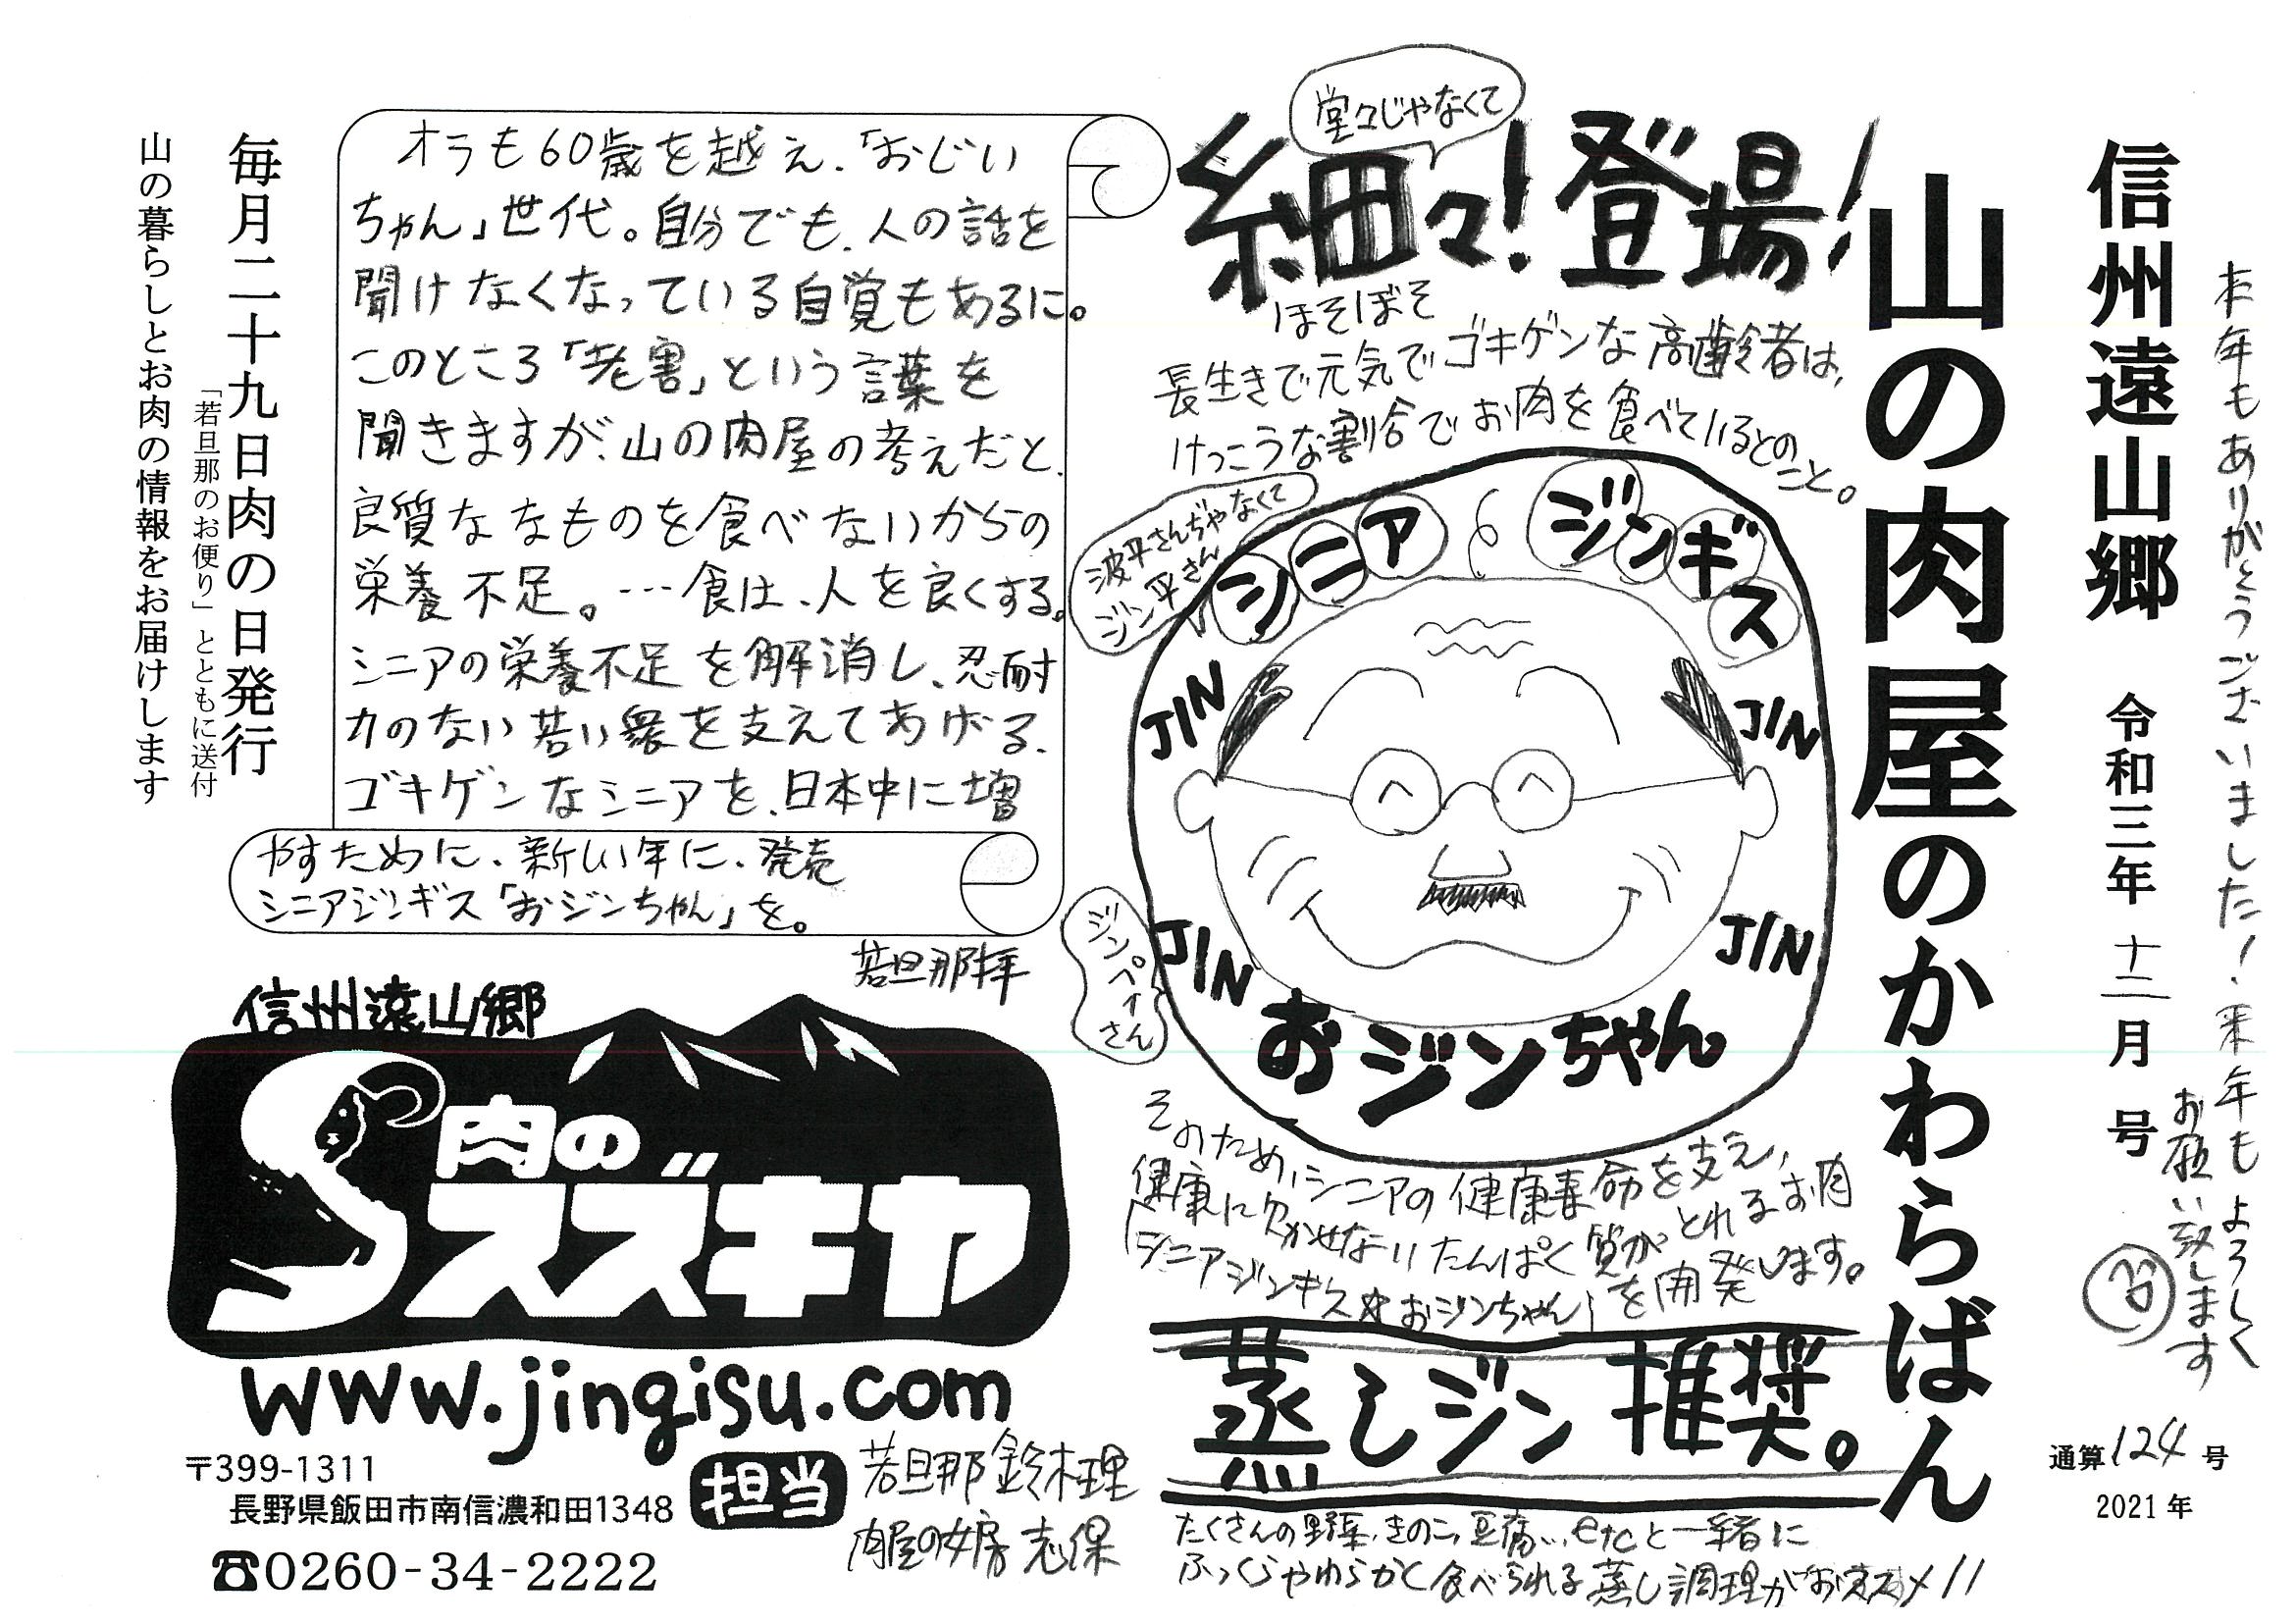 本年もありがとうございました！来年もよろしく
お願い致します
信州遠山郷　令和三年　十二月　号
通算124号
2021年
山の肉屋のかわらばん
堂々じゃなくて
細々！登場！
ほそぼそ
長生きで元気でゴキゲンな高齢者は、
けっこうな割合でお肉を食べているとのこと。
波平さんぢゃなくて
ジン平さん
シニア　ジンギス
JIN
JIN
JIN
JIN
ジンペイさん
おジンちゃん
そのため、シニアの健康寿命を支え、
健康に欠かせないたんぱく質がとれるお肉
「シニアジンギス☆おジンちゃん」を開発します。
蒸しジン推奨。
たくさんの野菜、きのこ、豆腐…etcと一緒に
ふっくらやわらかく食べられる蒸し調理がおススメ！！
オラも60歳を越え、「おじい
ちゃん」世代。自分でも、人の話を
聞けなくなっている自覚もあるに。
このところ「老害」という言葉を
聞きますが、山の肉屋の考えだと、
良質ななものを食べないからの
栄養不足。…食は、人を良くする。
シニアの栄養不足を解消し、忍耐
力のない若い衆を支えてあげる、
ゴキゲンなシニアを、日本中に増
やすために、新しい年に、発売
シニアジンギス「おジンちゃん」を。
若旦那拝
毎月二十九日肉の日発行
「若旦那のお便り」とともに送付
山の暮らしとお肉の情報をお届けします
信州遠山郷
肉の
スズキヤ
www.jingisu.com
〒399-1311
長野県飯田市南信濃和田1348
☎0260-34-2222
担当
若旦那 鈴木理
肉屋の女房 志保